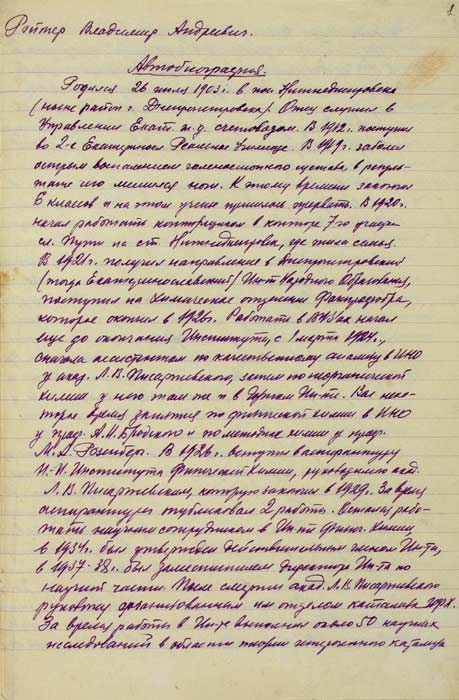 1
Ройтер Владимир Андреевич.
Автобиография.
Родился 26 июля 1903 г. в пос. Нижнеднепровске
(ныне район г. Днепропетровска). Отец служил в
Управлении Екат. ж.д. счетоводом. В 1912 г. поступил
во 2-е Екатеринослав Реальное Училище. В 1919 г. заболел
острым воспалением тазобедренного сустава, в резуль-
тате чего лишился ноги. К этому времени закончил
6 классов и на этом учение пришлось прервать. В 1920 г.
начал работать конторщиком в конторе 7-го участка
сл. Пути на ст. Нижнеднепровск, где жила семья.
В 1921 г. получил направление в Днепропетровский
(тогда Екатеринославский) Ин-т Народного Образования,
поступил на Химическое отделение Факпрофобра,
которое окончил в 1926 г. Работать в ВУЗ'ах начал
еще до окончания Института, с 1 марта 1924 г.,
сначала ассистентом по качественному анализу в ИНО
у акад. Л.В. Писаржевского, затем по неорганической
химии у него там же и в Горном Ин-те. Вел неко-
торое время занятия по физической химии в ИНО
у проф. А.И. Бродского и по методике химии у проф.
М.Д. Розенберг. В 1926 г. вступил в аспирантуру
Н.-И. Института Физической Химии, руководимую акад.
Л.В. Писаржевским, которую закончил в 1929 г. За время
аспирантуры опубликовал 2 работы. Остался рабо-
тать научным сотрудником в Ин-те Физич. Химии,
в 1934 г. был утвержден действительным членом Ин-та,
в 1937-38 г. был заместителем директора Ин-та по
научной части. После смерти акад. Л.В. Писаржевского
руковожу организованным им отделом катализа
За время работы в Ин-те выполнил около 50 научных
исследований в области теории гетерогенного катализа